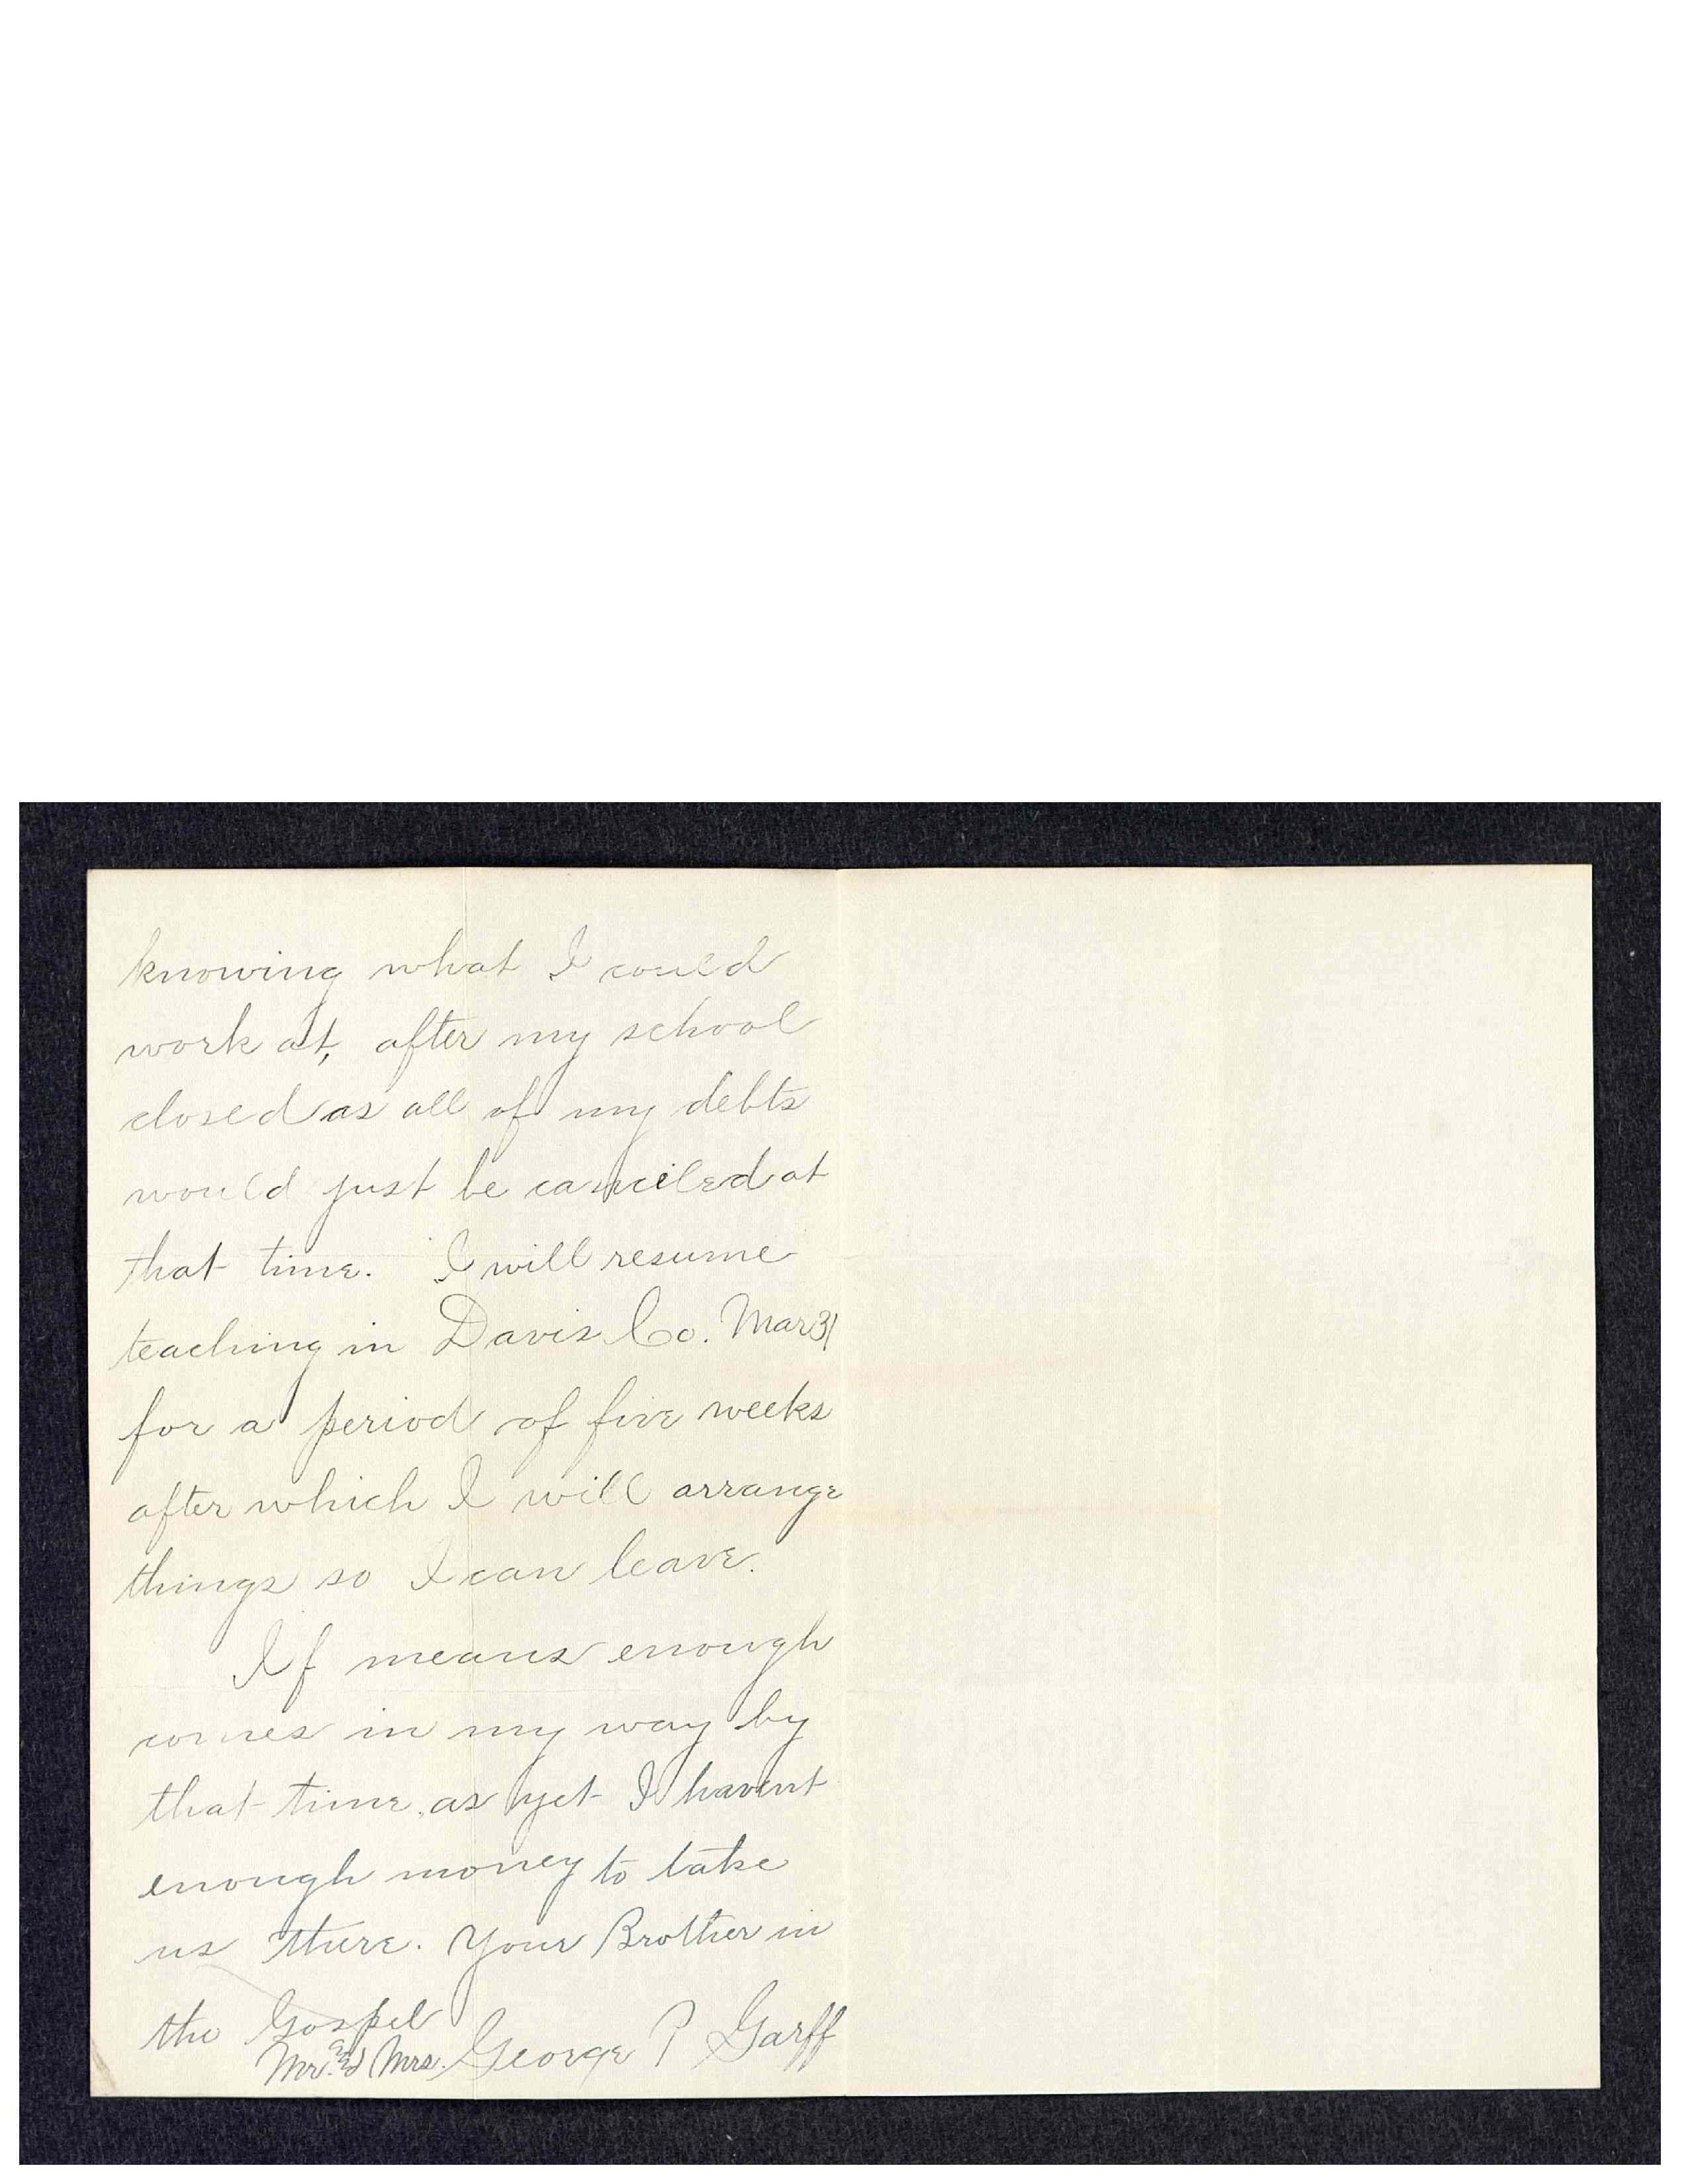 knowing what I could
work at, after my school
closed as all of my debts
would just be canciled at
that time. I will resume
teaching in Davis Co. Mar 31
for a period of five weeks
after which I will arrange
things so I can leave.
If means enough
comes in my way by
that time, as yet I havent
enough money to take
us there. Your Brother in
the Gospel
Mr. and Mrs. George P Garff